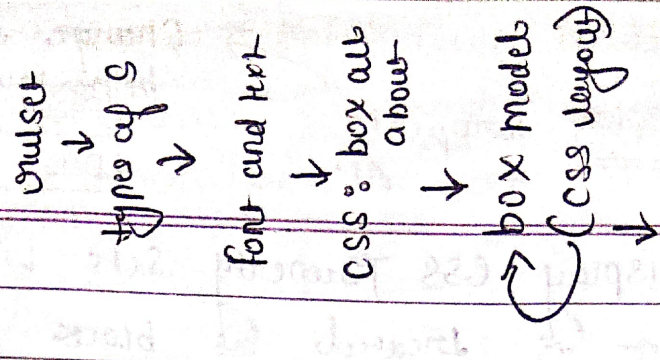 ruleset
↓
types of S
↓
font and text
↓
CSS: box all
about
↓
box model
(CSS layout)
↓